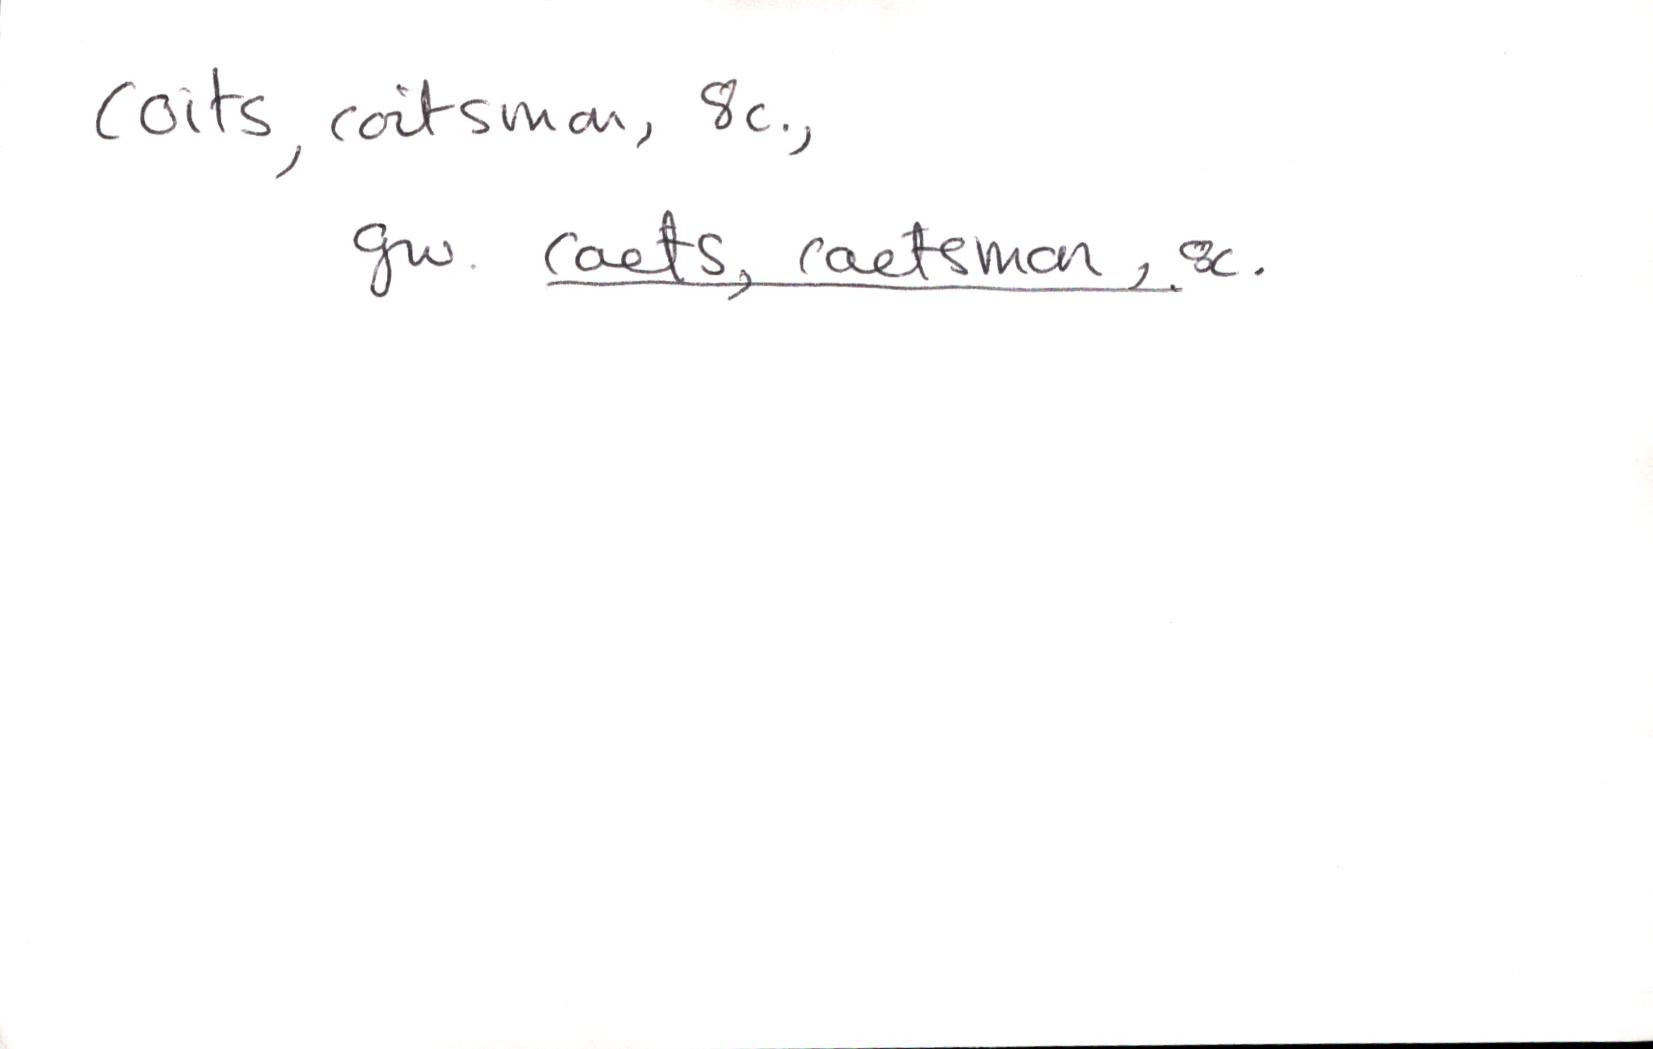 coits, coitsman, &c.,
gw. caets, caetsman, &c.